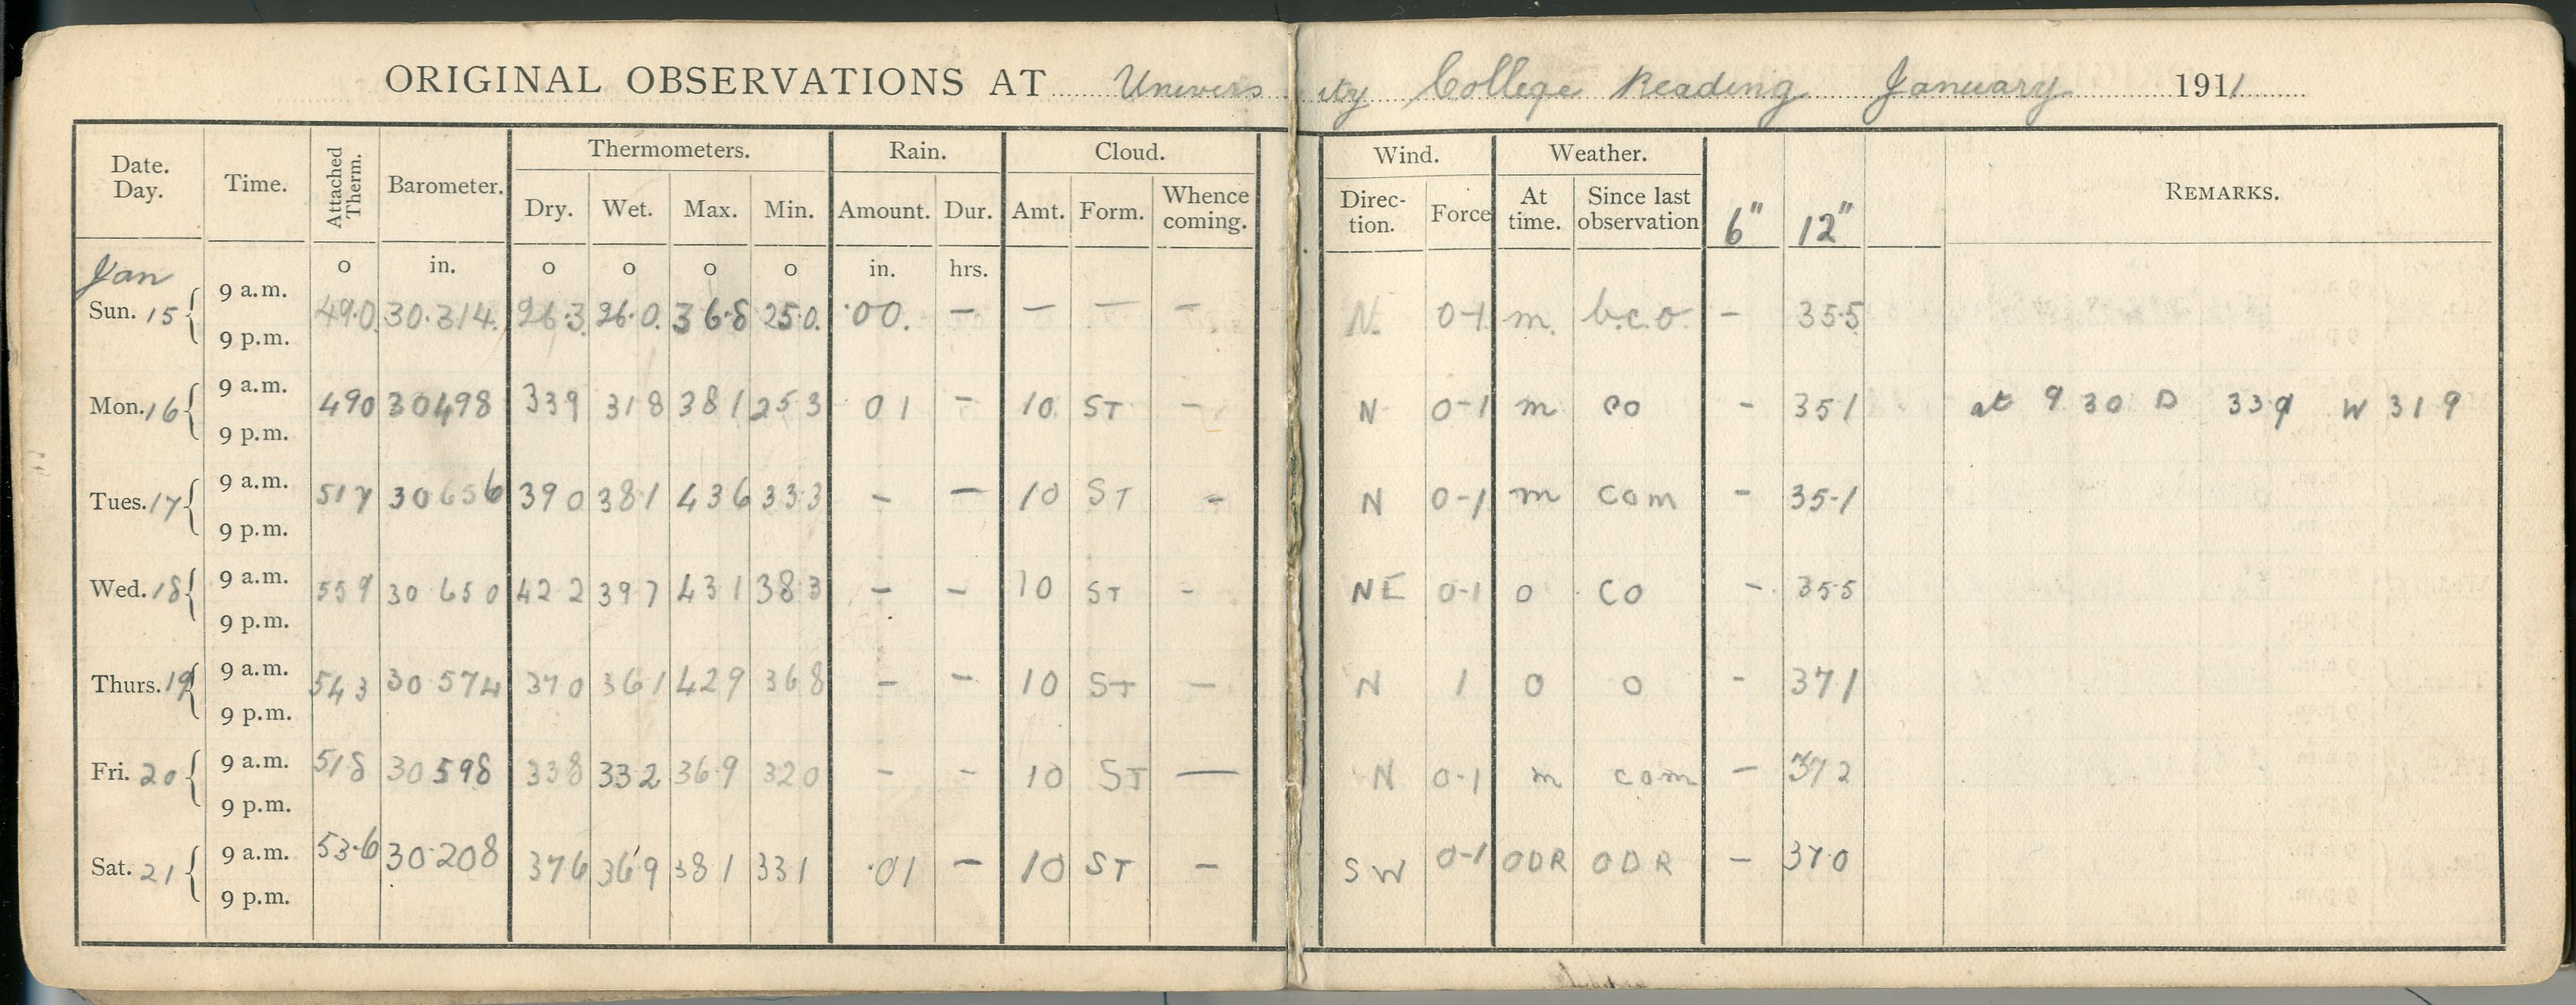 ORIGINAL OBSERVATIONS AT University College Reading January 1911
Date. Day. Time. Attached Therm. Barometer. Thermometers. Rain. Cloud. Wind. Weather. REMARKS.
Dry. Wet. Max. Min. Amount. Dur. Amt. Form. Whence coming. Direc-tion. Force At time. Since last observation 6" 12"
Jan o in. o o o o in. hrs.
9 a.m.
Sun. 15 49.0 30.314 26.3 26.0 36.8 25.0 .00. – – – – N 0-1 m. b.c.o. – 35.5
9 p.m.
9 a.m.
Mon. 16 490 30498 339 318 381 253 01 – 10 ST – N 0-1 m co – 351 at 9 30 D 339 W 319
9 p.m.
9 a.m.
Tues. 17 517 30656 390 381 436 333 – – 10 ST – N 0-1 m com – 35.1
9 p.m.
9 a.m.
Wed. 18 559 30 650 422 397 431 383 – – 10 ST – NE 0-1 o co – 355
9 p.m.
9 a.m.
Thurs. 19 543 30 574 370 361 429 368 – – 10 ST – N 1 o o – 371
9 p.m.
9 a.m.
Fri. 20 518 30598 338 332 369 320 – – 10 ST – N 0-1 m com – 372
9 p.m.
9 a.m.
Sat. 21 53.6 30.208 376 369 381 331 .01 – 10 ST – SW 0-1 ODR ODR – 370
9 p.m.